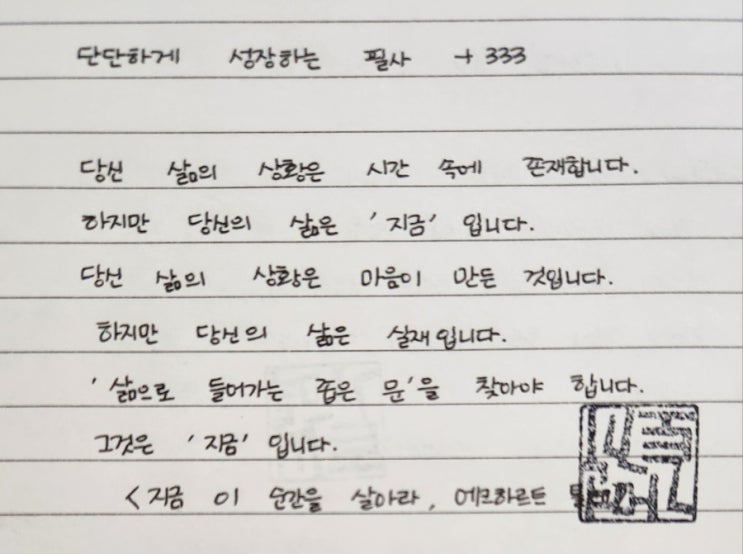 단단하게 성장하는 필사 + 333
당신 삶의 상황은 시간 속에 존재합니다.
하지만 당신의 삶은 '지금' 입니다.
당신 삶의 상황은 마음이 만든 것입니다.
하지만 당신의 삶은 실재입니다.
'삶으로 들어가는 좁은 문'을 찾아야 합니다.
그것은 '지금' 입니다.
<지금 이 순간을 살아라, 에크하르트